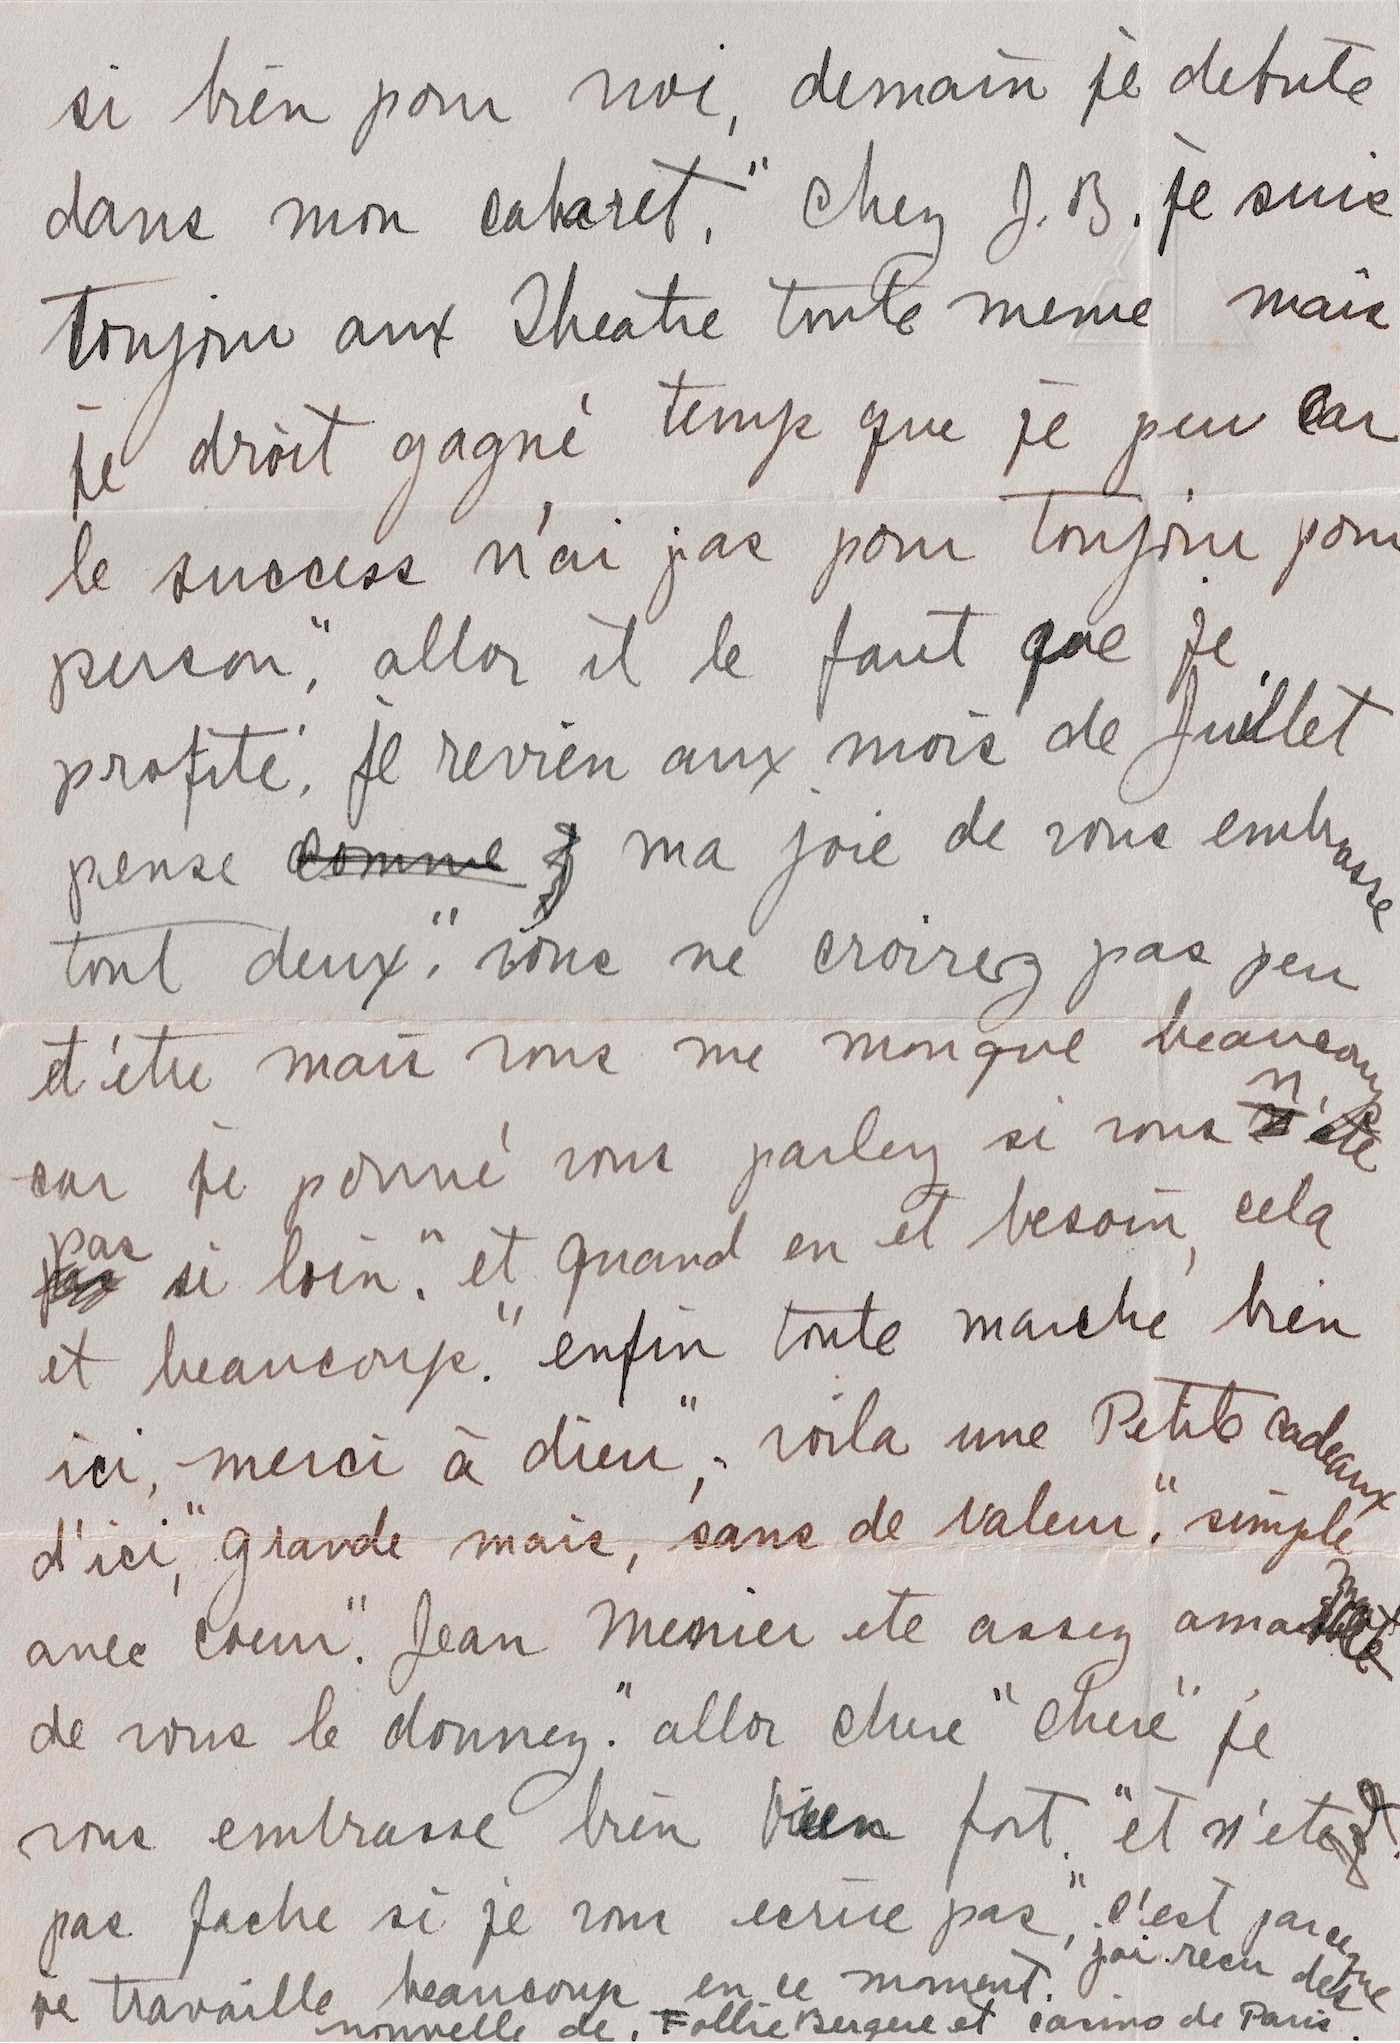 si bien pour moi, demain je debute
dans mon cabaret," Chez J. B. je suis
toujour aux Theatre toute meme mais
je droit gagné temp que je peu car
le success n'ai pas pour toujour pour
person", allor il le faut que je
profité, je revien aux mois de Juillet
pense comme ma joie de vous embrasse
tout deux." vous ne croirez pas peu
et'etre mais vous me monque beaucoup
car je pouvé vous parlez si vous n'ete
pas si loin." et quand en et besoin, cela
et beaucoup." enfin toute marche bien
ici, merci à dieu", voila une Petite cadeaux
d'ici," grande mais, sans de valeur." simple
avec coeur". Jean Menier ete assez
de vous le donnez." allor chere "chere" je
vous embrasse bien bien fort." et n'etez
pas fache si je vous ecrire pas", c'est parceque
je travaille beaucoup en ce moment. j'ai recu des
nouvelle de. Follie Bergere et casino de Paris.